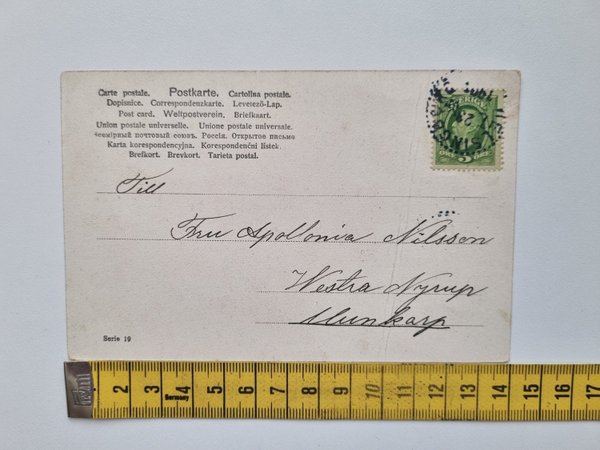 Carte postale. Postkarte. Cartolina postale.
Dopisnice. Correspondenzkarte. Levetező-Lap.
Post card. Weltpostverein. Briefkaart.
Union postale universelle. Unione postale universale.
Всемірный почтовый союзъ. Россія. Открытое письмо
Karta korespondencyjna. Korespondenční lístek.
Brefkort. Brevkort. Tarieta postal.
SVERIGE
5
Till
Fru Apollonia Nilsson
Westra Nyrup
Munkarp
Serie 19
2 3 4 5 6 7 8 9 10 11 12 13 14 15 16 17
Germany